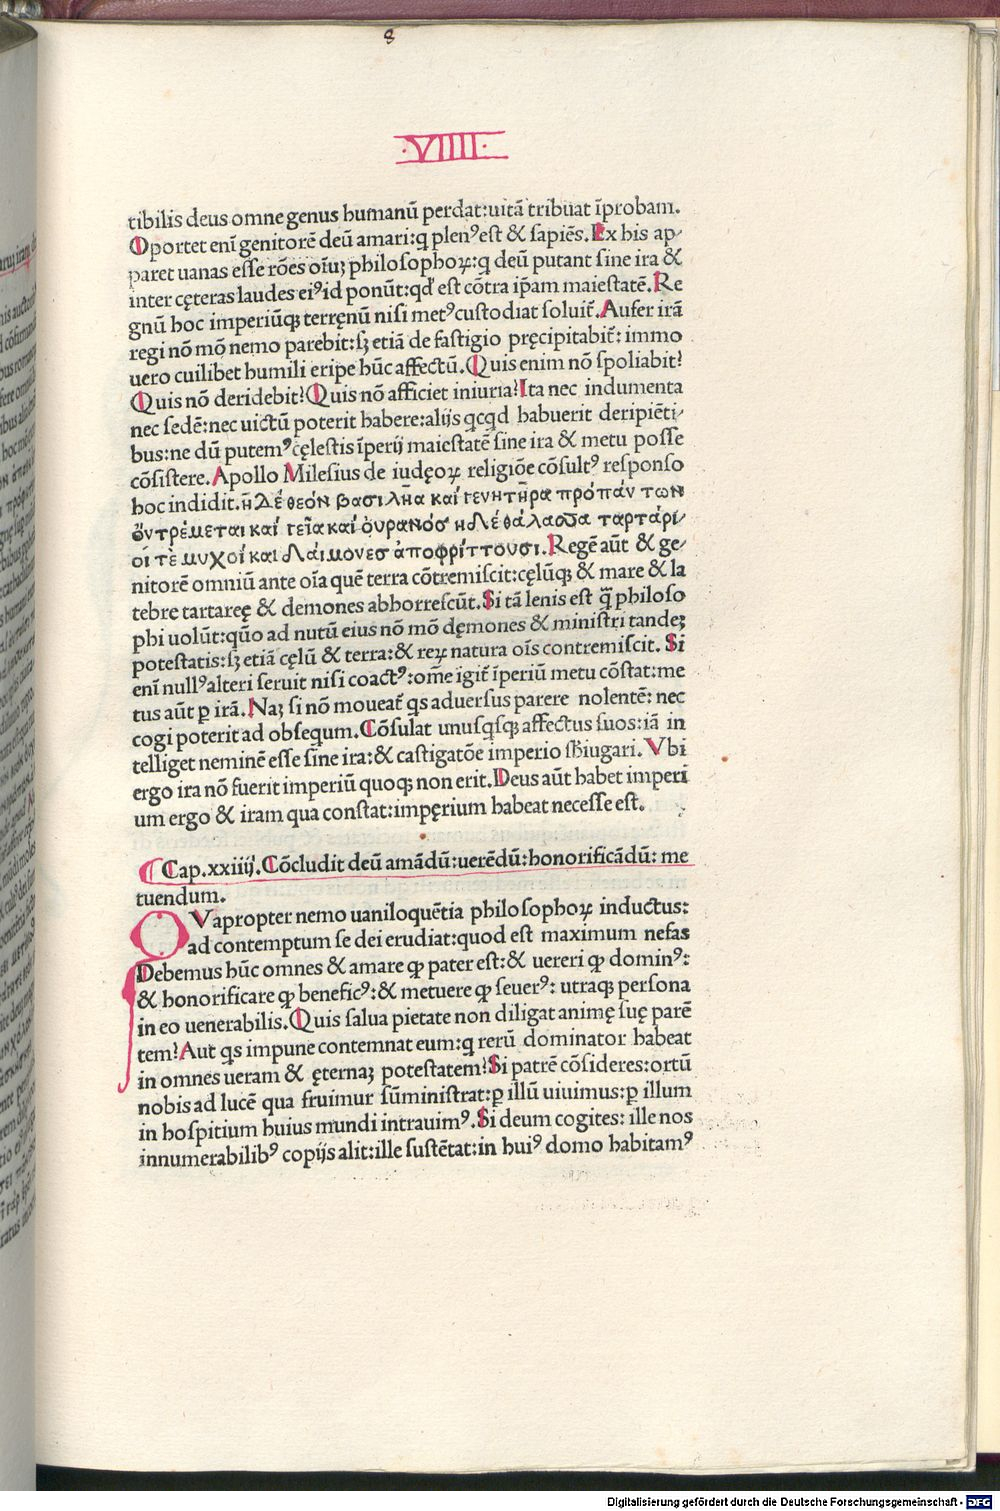 8
·VIIII·
tibilis deus omne genus humanū perdat:uitā tribuat īprobam.
Oportet enī genitorē deū amari:q plenꝰ est & sapiēs.Ex his ap-
paret uanas esse rōes oīuꝫ philosophoꝝ:q deū putant sine ira &
inter cęteras laudes eiꝰ id ponūt:qd̄ est cōtra ip̄am maiestatē.Re
gnū hoc imperiūqꝫ terręnū nisi metꝰ custodiat soluit̄.Aufer irā
regi nō mō nemo parebit:sꝫ etiā de fastigio pręcipitabit̄: immo
uero cuilibet humili eripe hūc affectū.Quis enim nō spoliabit?
Quis nō deridebit?Quis nō afficiet iniuria?Ita nec indumenta
nec sedē:nec uictū poterit habere:alijs qcqd habuerit deripiēti-
bus:ne dū putemꝰ cęlestis īperij maiestatē sine ira & metu posse
cōsistere.Apollo Milesius de iudęoꝝ religiōe cōsultꝰ responso
hoc indidit.ἠ Δέ θεόν βασιλῆα καί γενητῆρα πρόπάν των
ὀντρέμεται καί γεῖα καί ὀυρανόσ ἠΔέ θάλασσα ταρτάρι-
οί τὲ μυχοί και Δαίμονεσ ἀποφρίττουσι.Regē aūt & ge-
nitorē omniū ante oīa quē terra cōtremiscit:cęlūqꝫ & mare & la
tebre tartareę & demones abhorrescūt.Si tā lenis est q̄ philoso
phi uolūt:quō ad nutū eius nō mō dęmones & ministri tandeꝫ
potestatis:sꝫ etiā cęlū & terra:& reꝝ natura oīs contremiscit. Si
enī nullꝰ alteri seruit nisi coactꝰ:om̄e igit̄ īperiū metu cōstat:me
tus aūt ꝑ irā.Naꝫ si nō moueat̄ qs aduersus parere nolentē: nec
cogi poterit ad obsequm.Cōsulat unusqsqꝫ affectus suos:iā in
telliget neminē esse sine ira:& castigatōe imperio sb̄iugari.Vbi
ergo ira nō fuerit imperiū quoqꝫ non erit.Deus aūt habet imperi
um ergo & iram qua constat:impęrium habeat necesse est.
¶Cap.xxiiij.Cōcludit deū amādū:uerēdū:honorificādū: me
tuendum.
QVapropter nemo uaniloquētia philosophoꝝ inductus:
ad contemptum se dei erudiat:quod est maximum nefas
Debemus hūc omnes & amare qꝫ pater est:& uereri qꝫ dominꝰ:
& honorificare qꝫ beneficꝰ:& metuere qꝫ seuerꝰ: utraqꝫ persona
in eo uenerabilis.Quis salua pietate non diligat animę suę parē
tem?Aut qs impune contemnat eum:q rerū dominator habeat
in omnes ueram & ęternaꝫ potestatem?Si patrē cōsideres:ortū
nobis ad lucē qua fruimur sūministrat:ꝑ illū uiuimus:ꝑ illum
in hospitium huius mundi intrauimꝰ.Si deum cogites: ille nos
innumerabilibꝰ copijs alit:ille sustētat:in huiꝰ domo habitamꝰ
Digitalisierung gefördert durch die Deutsche Forschungsgemeinschaft - DFG